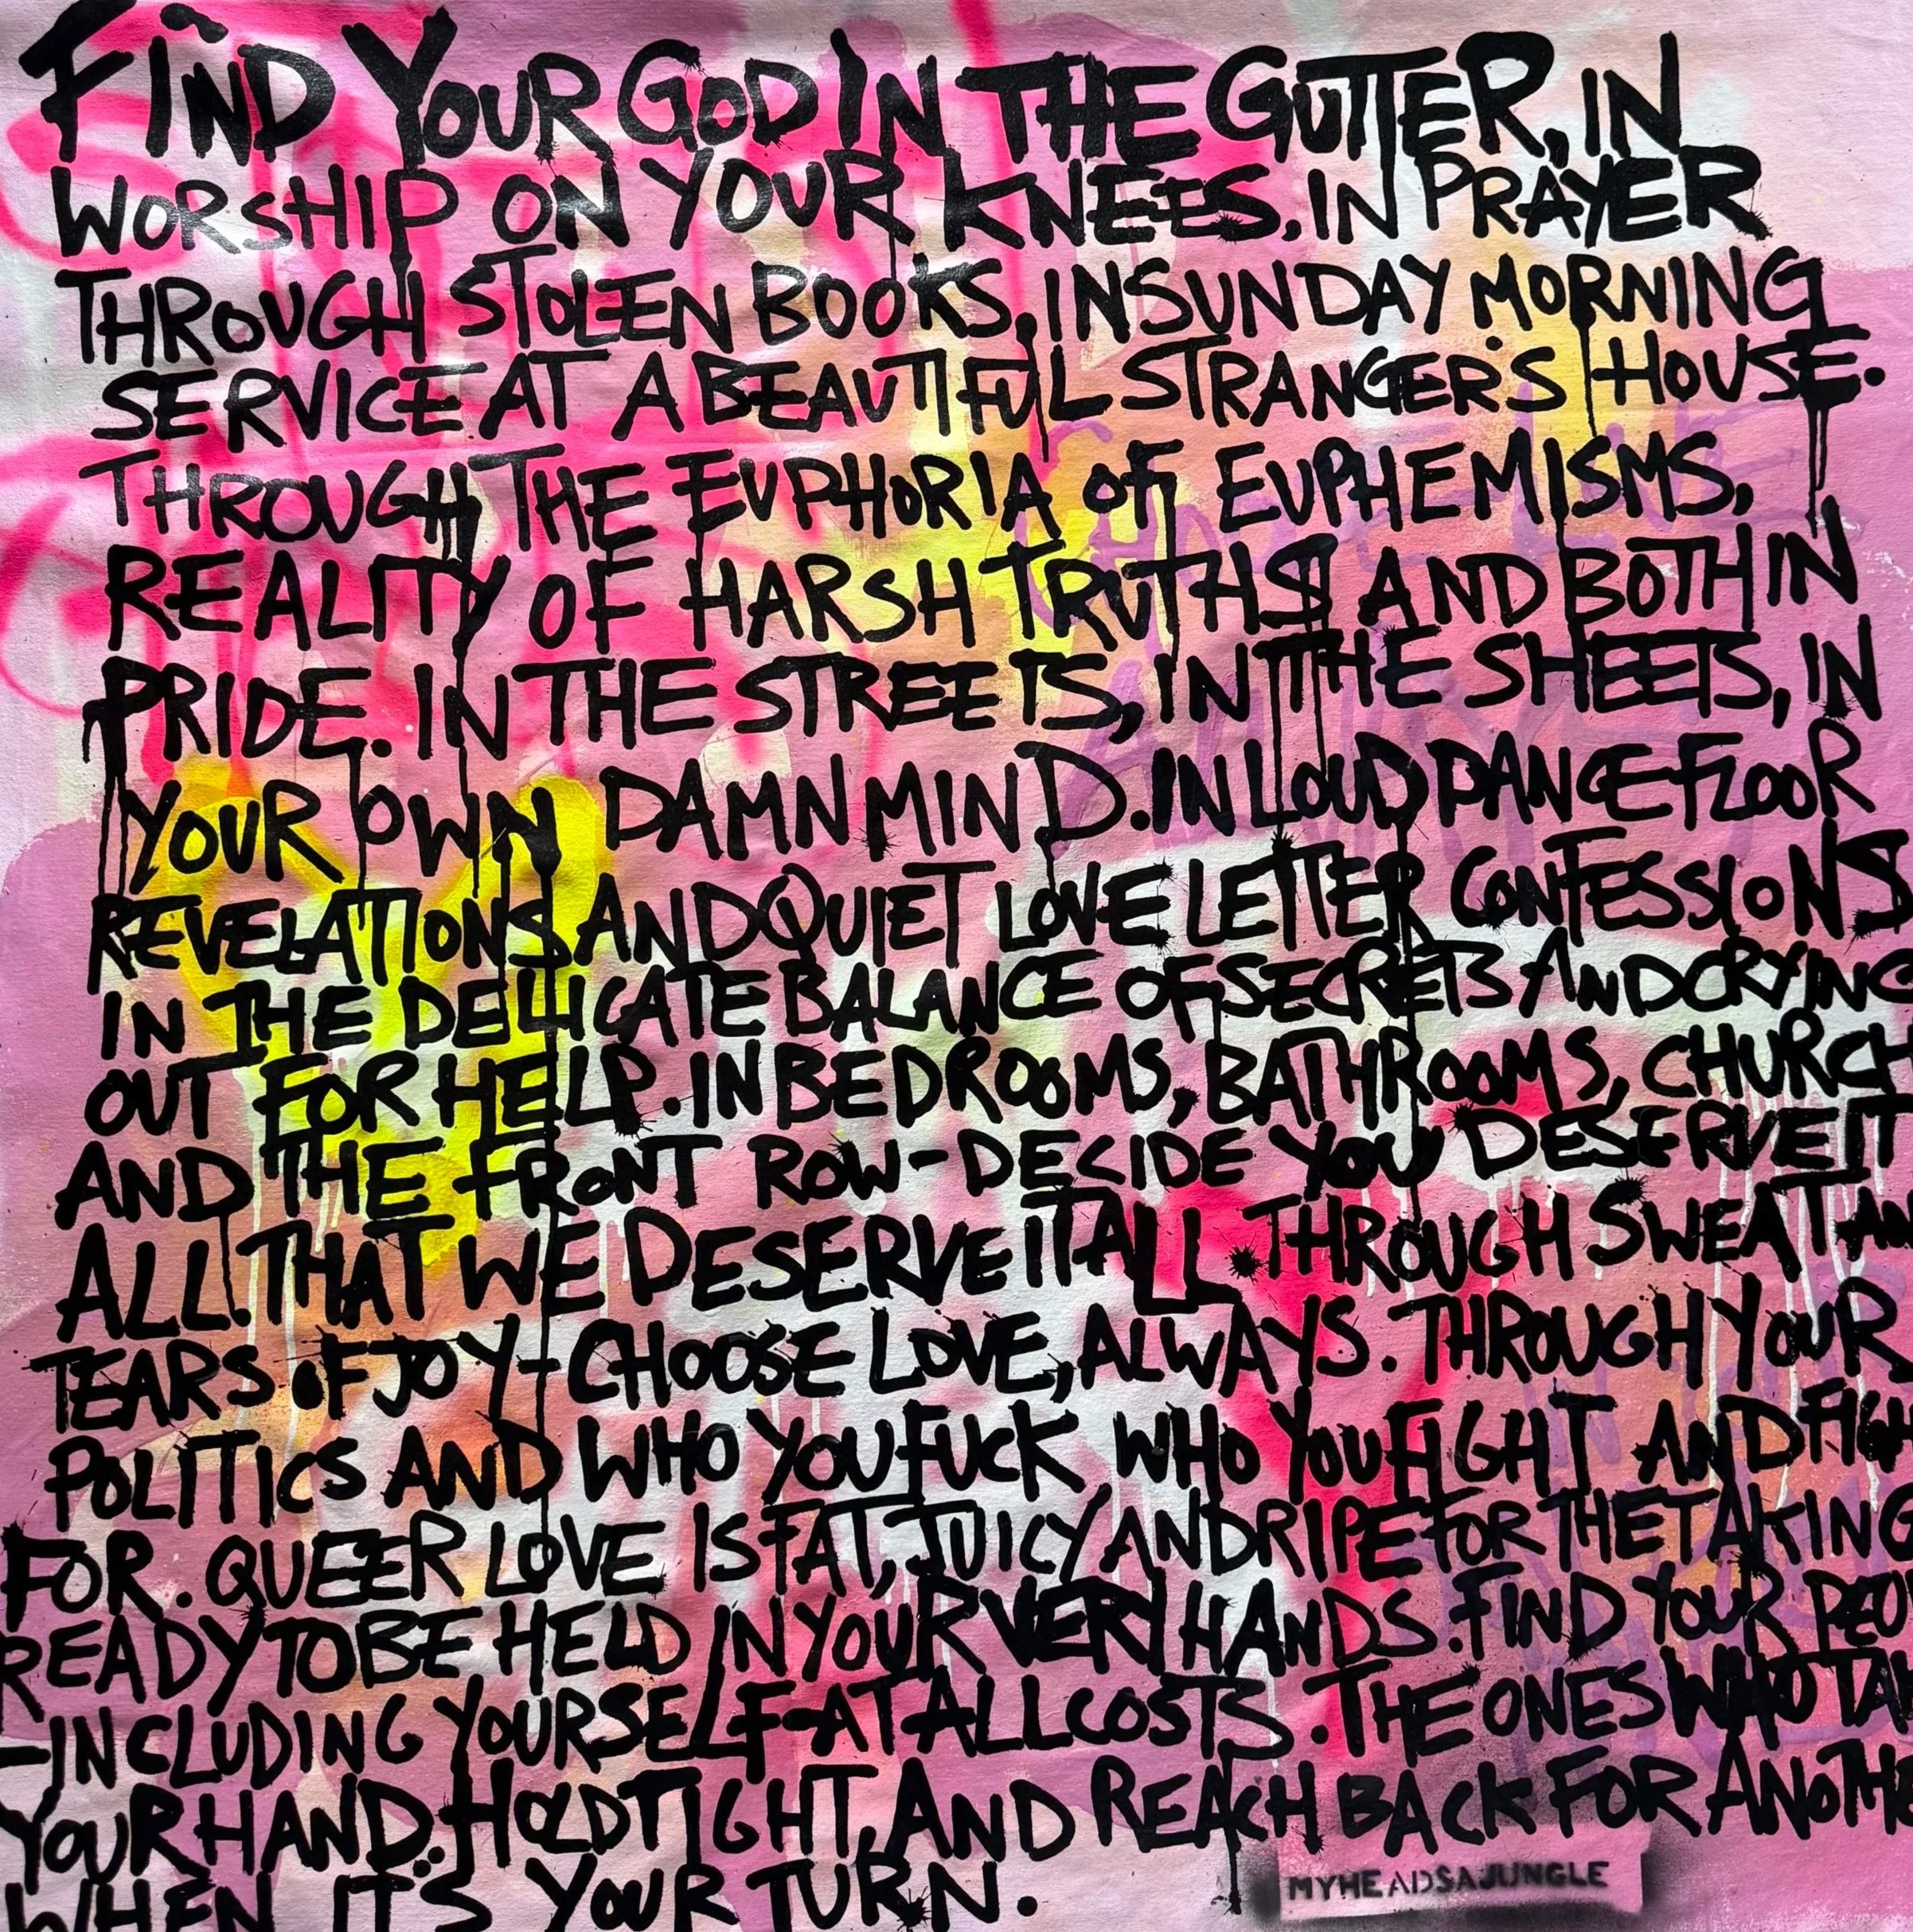 FIND YOUR GOD IN THE GUTTER, IN
WORSHIP ON YOUR KNEES, IN PRAYER
THROUGH STOLEN BOOKS, IN SUNDAY MORNING
SERVICE AT A BEAUTIFUL STRANGER'S HOUSE.
THROUGH THE EUPHORIA OF EUPHEMISMS,
REALITY OF HARSH TRUTHS AND BOTH IN
PRIDE. IN THE STREETS, IN THE SHEETS, IN
YOUR OWN DAMN MIND. IN LOUD DANCE FLOOR
REVELATIONS AND QUIET LOVE LETTER CONFESSIONS
IN THE DELICATE BALANCE OF SECRETS AND CRYING
OUT FOR HELP. IN BEDROOMS, BATHROOMS, CHURCH
AND THE FRONT ROW-DECIDE YOU DESERVE IT
ALL. THAT WE DESERVE IT ALL. THROUGH SWEAT AN
TEARS OF JOY-CHOOSE LOVE, ALWAYS. THROUGH YOUR
POLITICS AND WHO YOU FUCK WHO YOU FIGHT AND FIGH
FOR. QUEER LOVE IS FAT, JUICY AND RIPE FOR THE TAKING
READY TO BE HELD IN YOUR VERY HANDS. FIND YOUR PEO
-INCLUDING YOURSELF-AT ALL COSTS. THE ONES WHO TA
YOUR HAND. HOLD TIGHT, AND REACH BACK FOR ANOTHE
WHEN IT'S YOUR TURN.
MYHEADSAJUNGLE